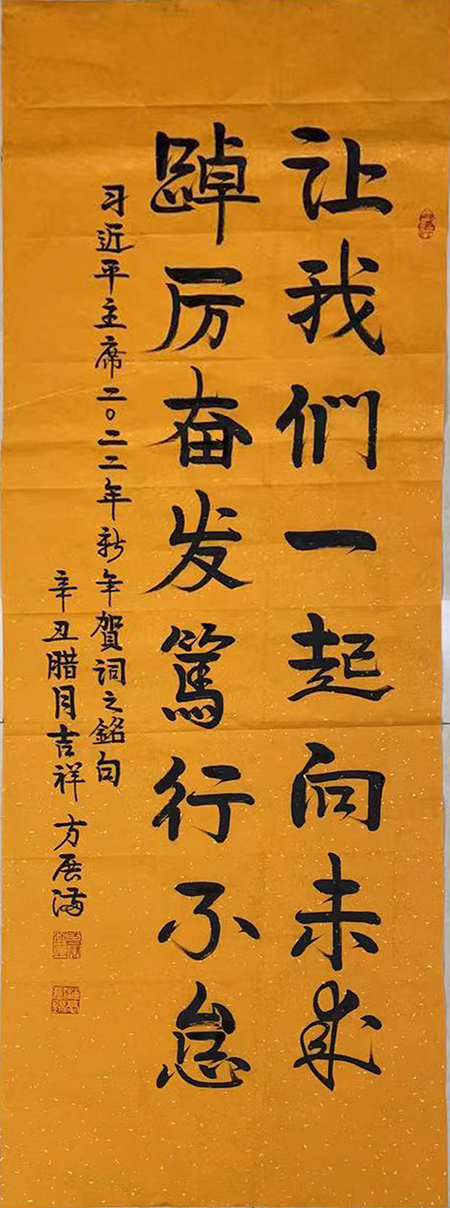 让我们一起向未来
踔厉奋发笃行不怠
习近平主席二〇二二年新年賀词之銘句
辛丑腊月吉祥 方展满